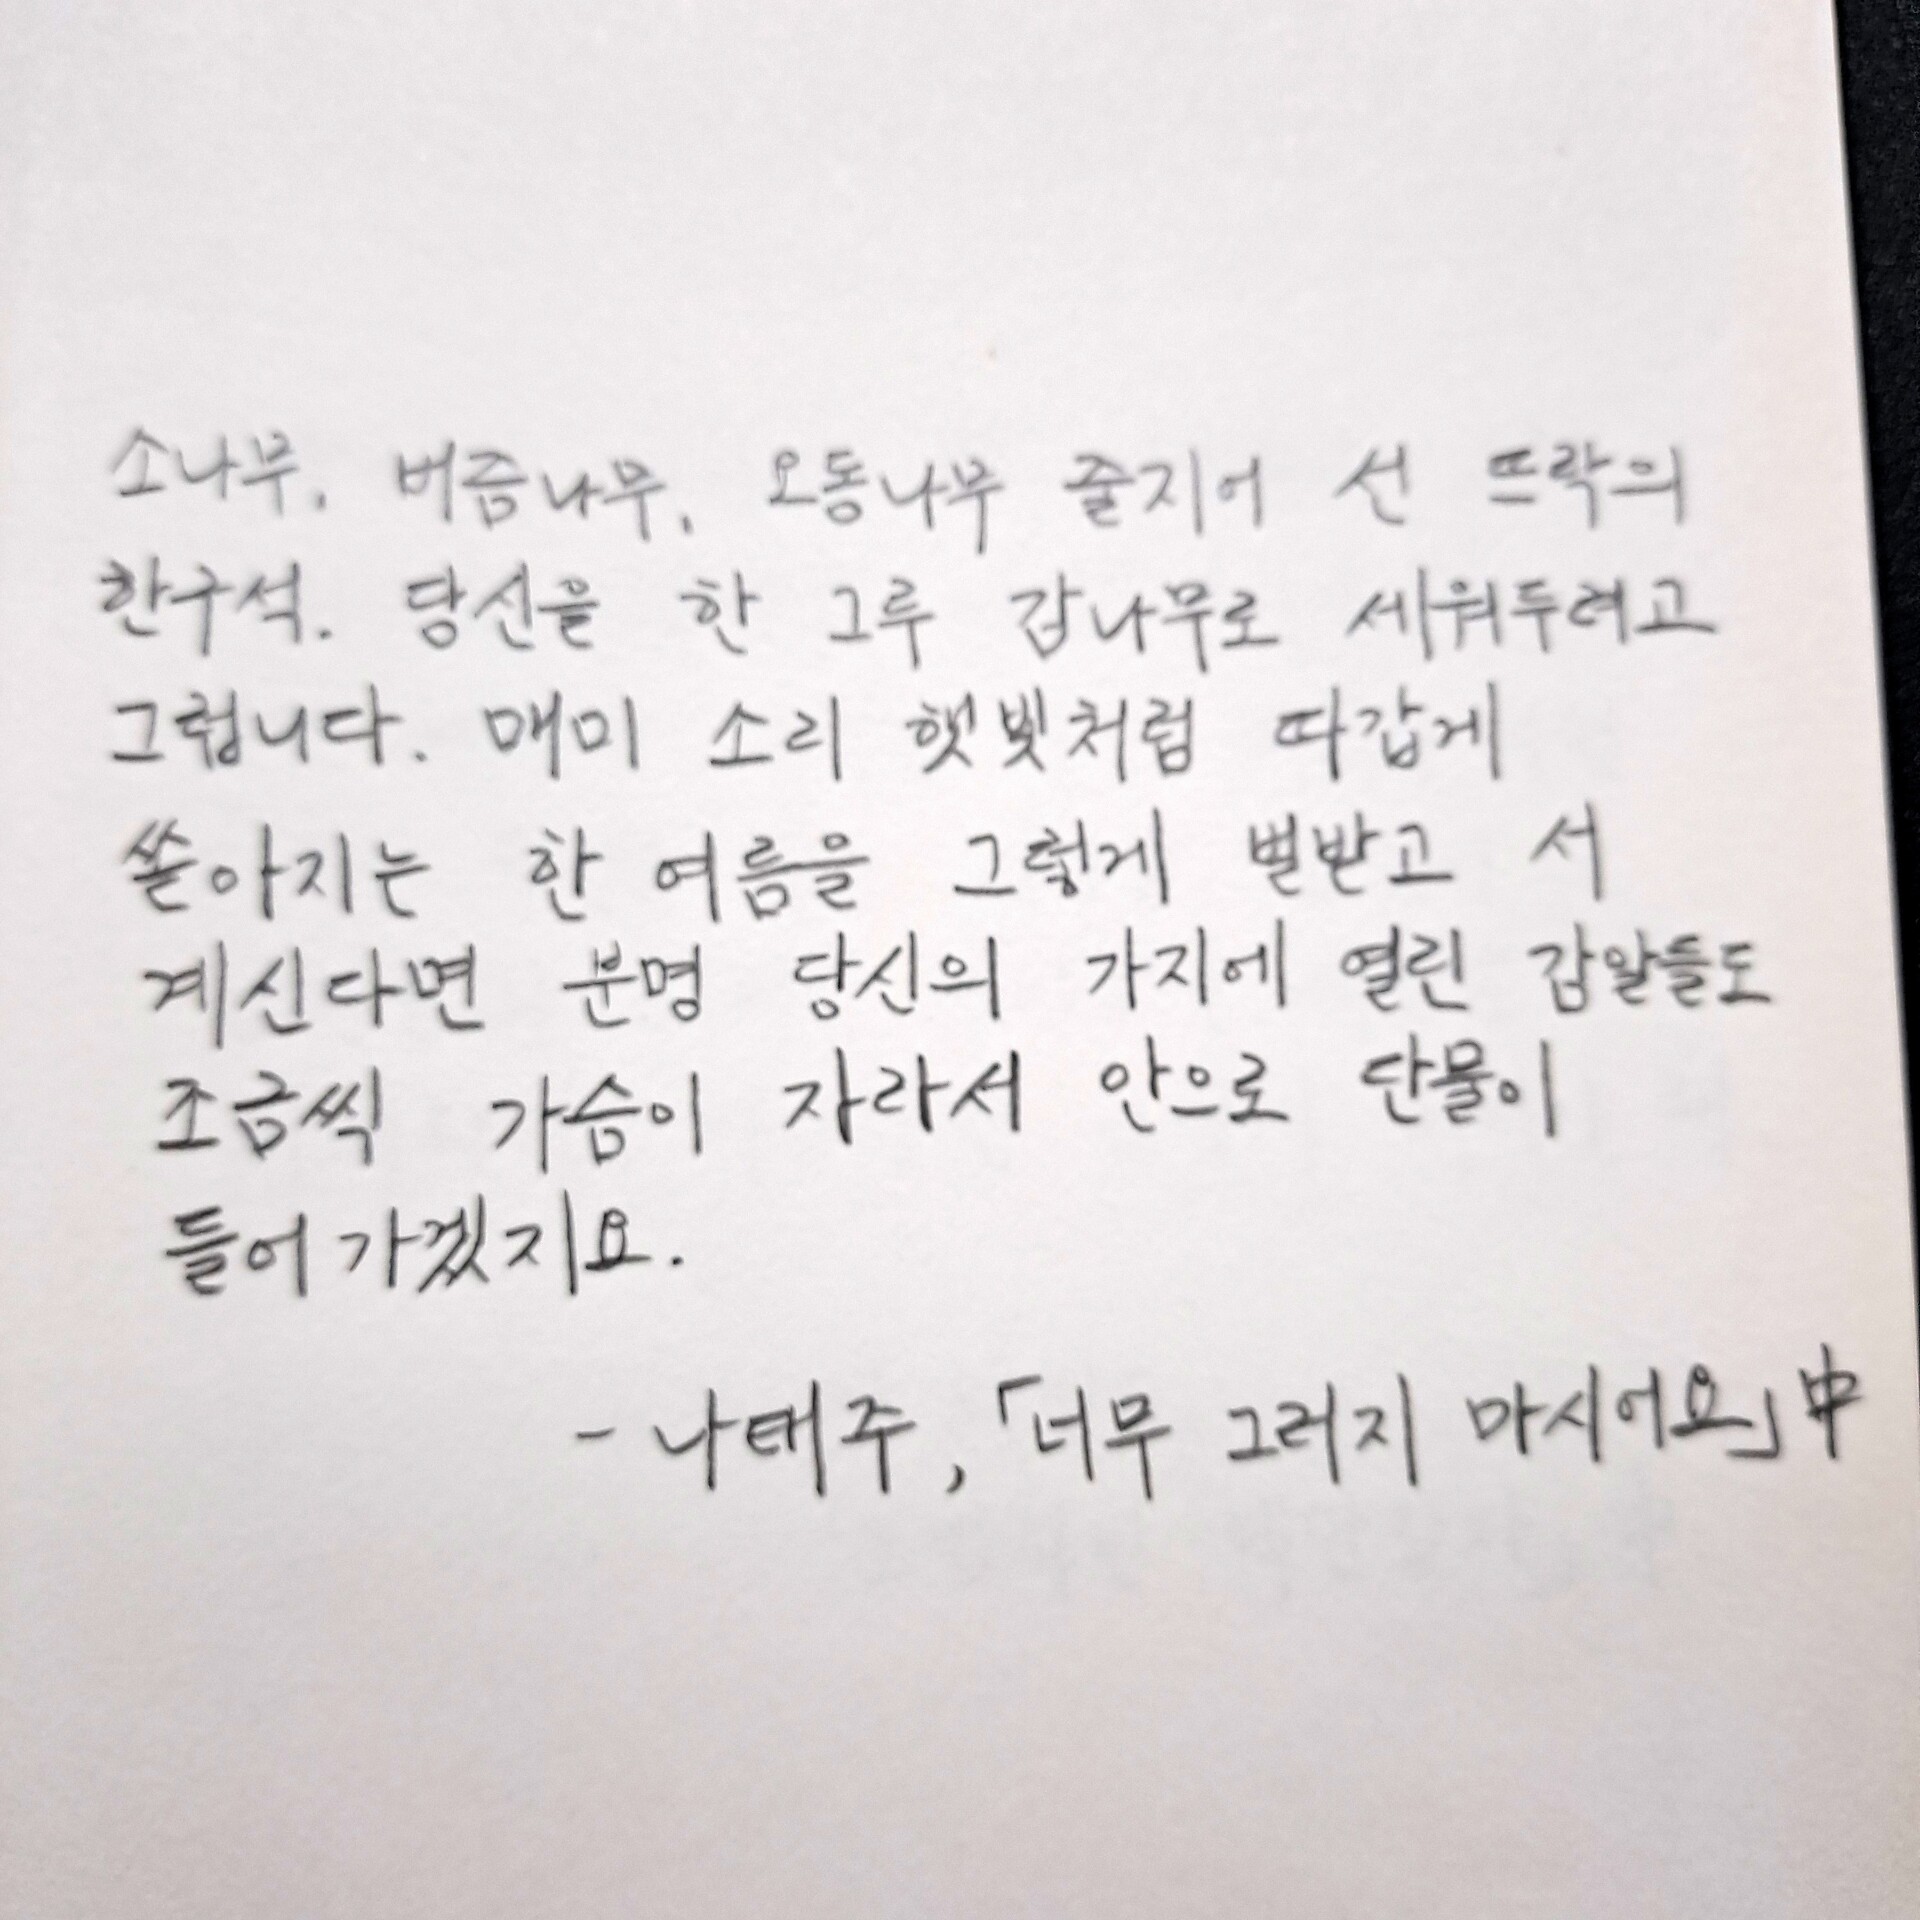 소나무, 버즘나무, 오동나무 줄지어 선 뜨락의
한구석. 당신을 한 그루 감나무로 세워두려고
그럽니다. 매미 소리 햇빛처럼 따갑게
쏟아지는 한 여름을 그렇게 벌받고 서
계신다면 분명 당신의 가지에 열린 감알들도
조금씩 가슴이 자라서 안으로 단물이
들어가겠지요.
- 나태주, 「너무 그러지 마시어요」中